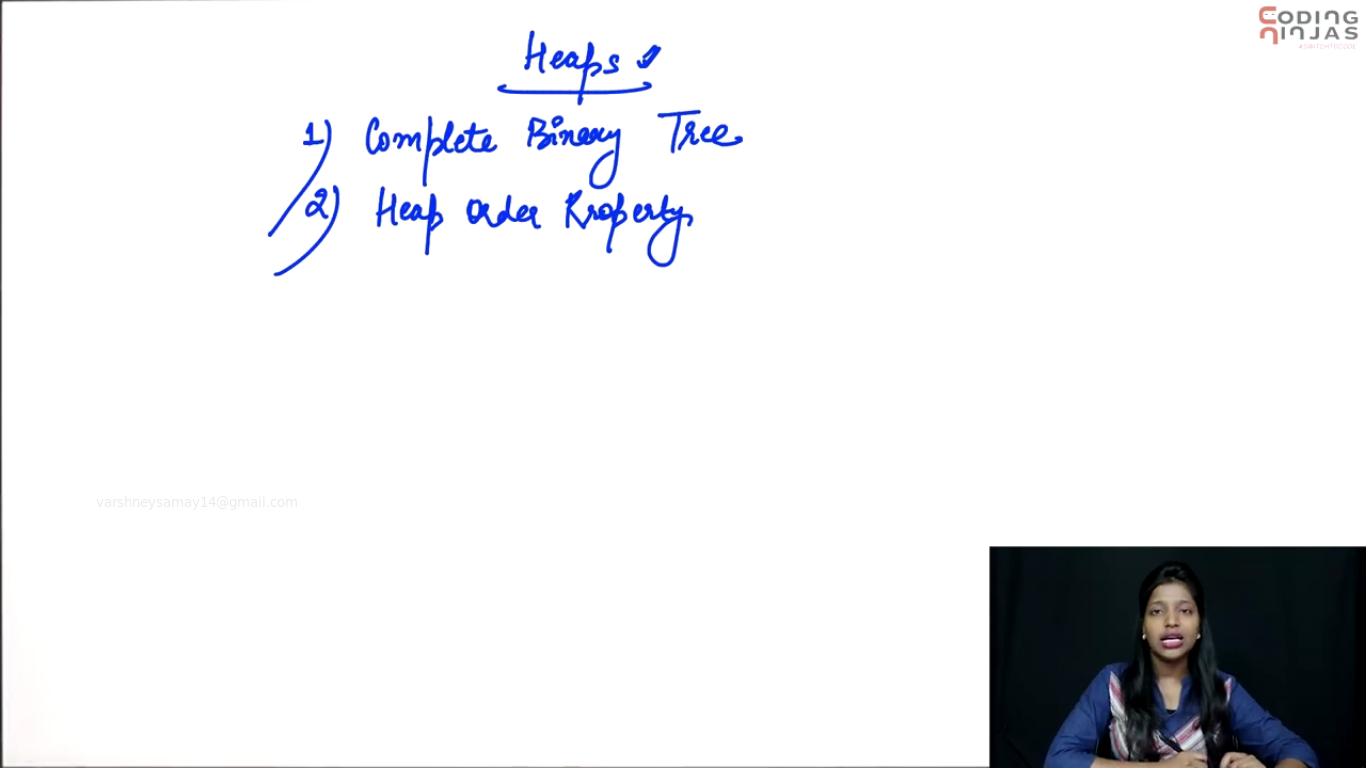 CODING
NINJAS
#SWITCHTOCODE
Heaps
1) Complete Binary Tree
2) Heap Order Property
varshneysamay14@gmail.com